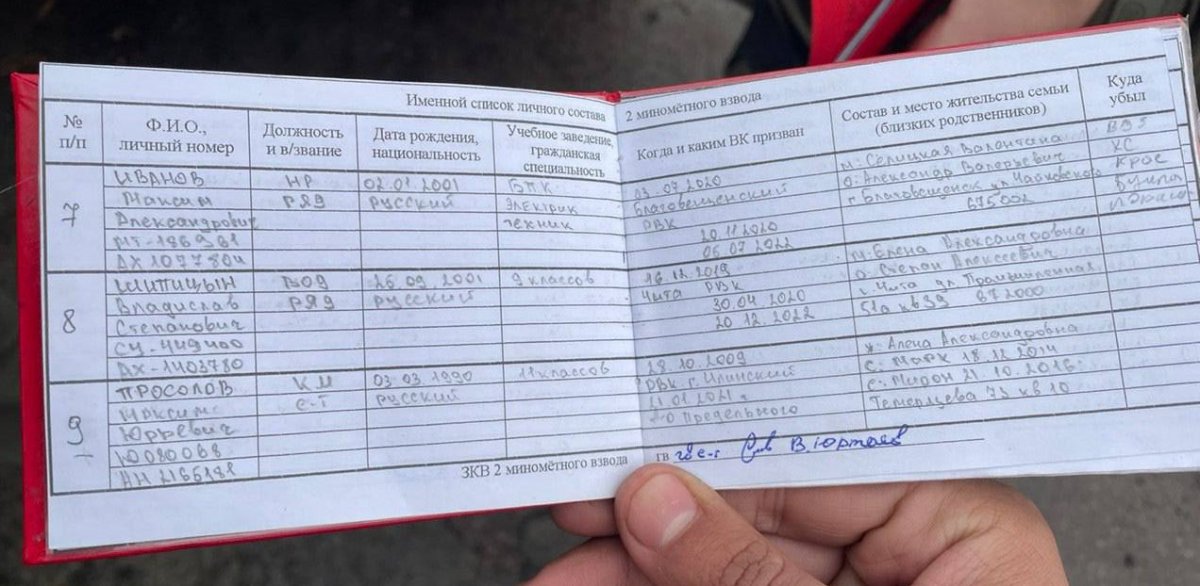 Именной список личного состава 2 миномётного взвода
№ п/п
Ф.И.О., личный номер
Должность и в/звание
Дата рождения, национальность
Учебное заведение, гражданская специальность
Когда и каким ВК призван
Состав и место жительства семьи (близких родственников)
Куда убыл
7
ИВАНОВ НР 02.01 2001 БПК 13.07 2020 м: Селицкая Валентина
Максим РЯД русский Электрик Благовещенский о: Александр Валерьевич
Александрович техник РВК г Благовещенск ул Чайковского
20 11 2020 675002
06 07 2022
8
ШИПИЦЫН 26 09 2001 9 классов 16.12.2019 м: Елена Александровна
Владислав РЯД русский Чита РВК о: Степан Алексеевич
Степанович 30.04 2020 г. Чита ул Промышленная
СУ-449400 20 12.2022 51а кв 39 672000
АХ-1403780
9
ПРОСОЛОВ КМ 03 03 1990 11 классов 28 10.2009 ж: Алена Александровна
с-т русский РВК г. с: Марк 18 12 2014
Юрьевич 11.01 2021 с: Мирон 21.10.2016
Ю080068 до Предельного кв 10
ЗКВ 2 миномётного взвода гв с-т В.Юртаев